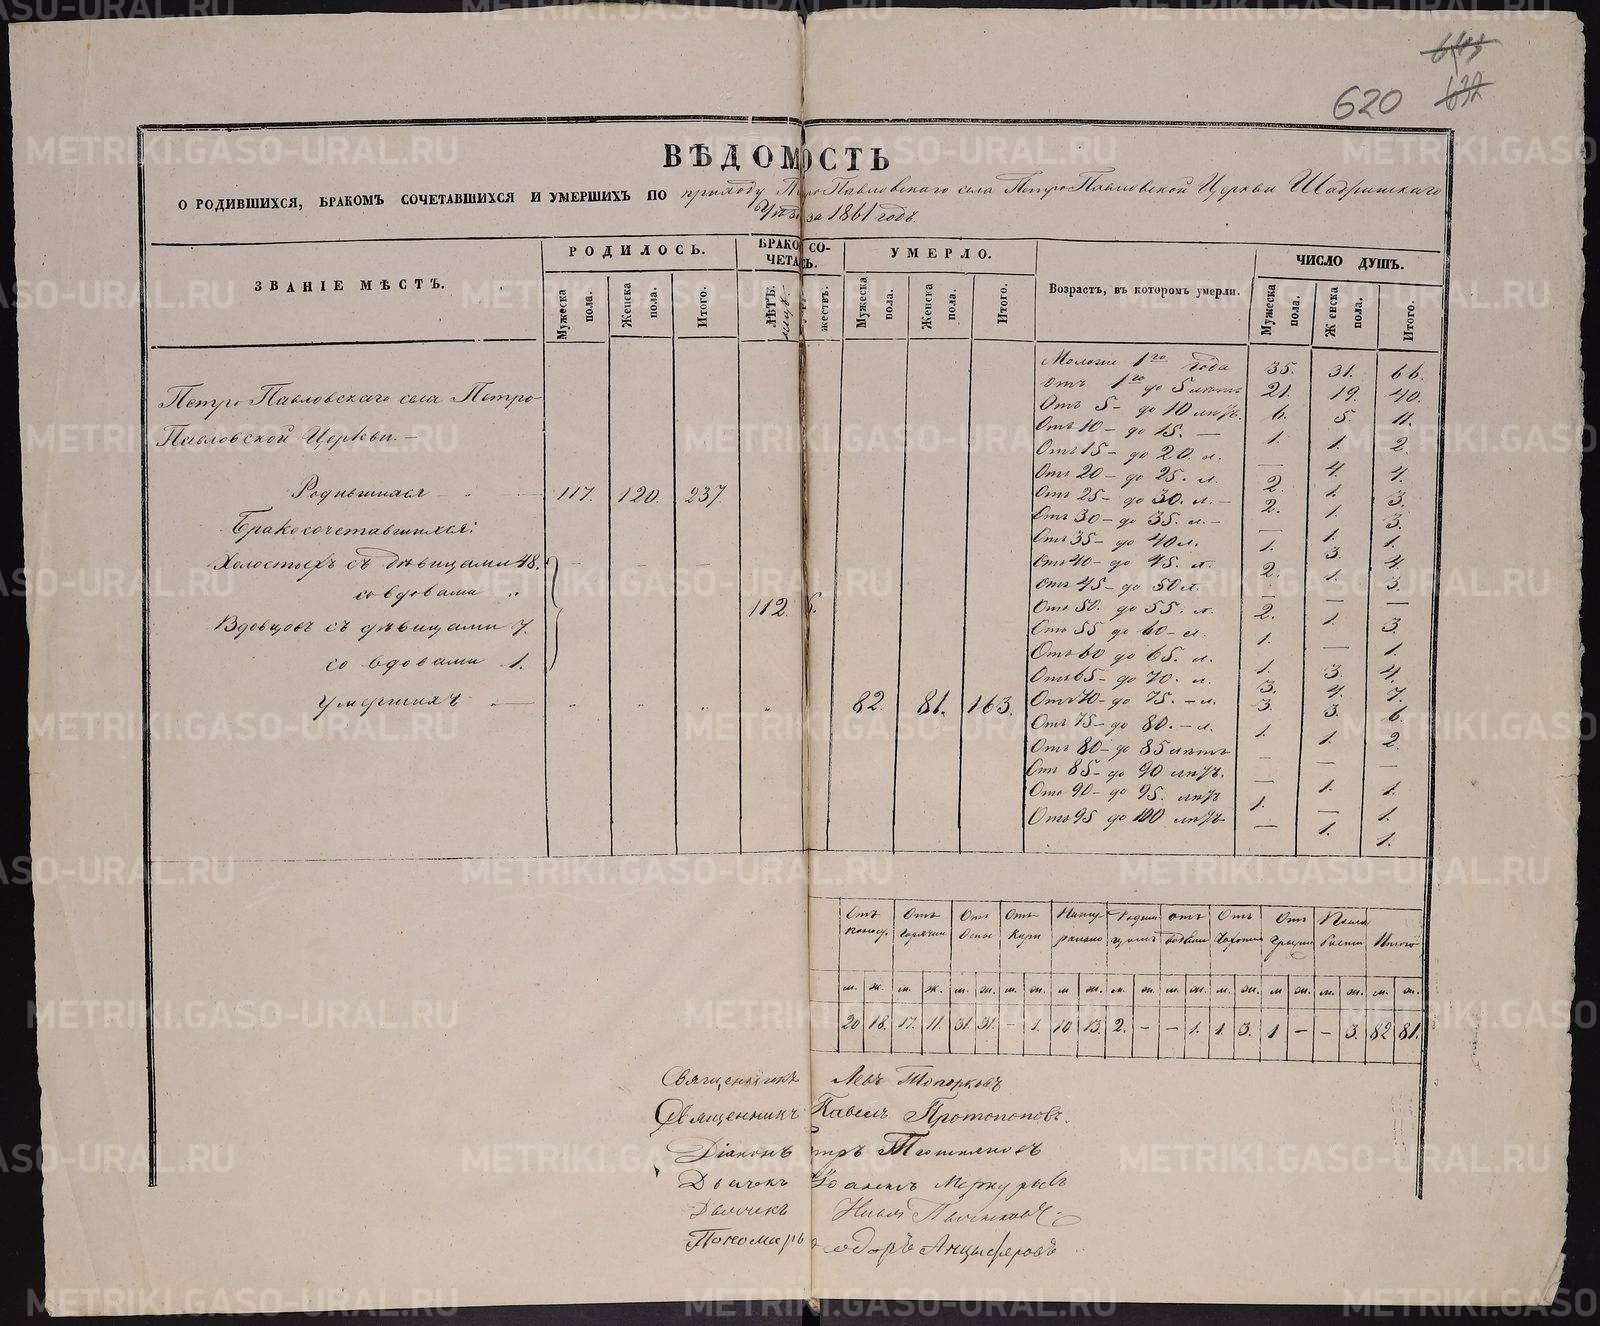 620
ВѢДОМОСТЬ
О РОДИВШИХСЯ, БРАКОМЪ СОЧЕТАВШИХСЯ И УМЕРШИХЪ ПО приходу ПетроПавловскаго села ПетроПавловской Церкви Шадринскаго
за 1861 годъ.
ЗВАНІЕ МѢСТЪ.
РОДИЛОСЬ.
Мужеска пола.
Женска пола.
Итого.
БРАКО СО-
ЧЕТА СЬ.
ЛѢТЪ.
жествъ.
УМЕРЛО.
Мужеска пола.
Женска пола.
Итого.
Возрастъ, въ которомъ умерли.
ЧИСЛО ДУШЪ.
Мужеска пола.
Женска пола.
Итого.
Петро Павловскаго села Петро-
Павловской Церкви. —
Родившихся — 117. 120. 237.
Бракосочетавшихся:
Холостыхъ съ дѣвицами 48.
со вдовами "
112.
Вдовцовъ съ дѣвицами 7.
со вдовами 1.
Умершихъ — 82. 81. 163.
Моложе 1го года 35. 31. 66.
Отъ 1го до 5 лѣтъ 21. 19. 40.
Отъ 5 – до 10 лѣтъ. 6. 5. 11.
Отъ 10 – до 15. — 1. 1. 2.
Отъ 15 – до 20. л. — 4. 4.
Отъ 20 – до 25. л. 2. 1. 3.
Отъ 25 – до 30. л. – 2. 1. 3.
Отъ 30 – до 35. л. – — 1. 1.
Отъ 35 – до 40 л. 1. 3. 4.
Отъ 40 – до 45. л. 2. 1. 3.
Отъ 45 – до 50 л. — — —
Отъ 50. до 55. л. 2. 1. 3.
Отъ 55 до 60 – л. 1. — 1.
Отъ 60 до 65. л. 1. 3. 4.
Отъ 65 – до 70. л. 3. 4. 7.
Отъ 70 – до 75. – л. 3. 3. 6.
Отъ 75 – до 80. – л. 1. 1. 2.
Отъ 80 – до 85 лѣтъ — — —
Отъ 85 – до 90 лѣтъ. — 1. 1.
Отъ 90 – до 95. лѣтъ 1. — 1.
Отъ 95 до 100 лѣтъ — 1. 1.
Отъ Отъ Отъ Отъ Отъ Отъ Отъ Итого
м. ж. м. ж. м. ж. м. ж. м ж. м. ж. м. ж. м. ж. м ж. м. ж. м. ж.
20 18. 17. 11. 31. 31. – 1. 10 13. 2. – – 1. 1. 3. 1 – – 3. 82 81.
Священникъ Левъ Топорковъ
Священникъ Павелъ Протопоповъ.
Діаконъ
Дьячекъ Іоаннъ Меркурьевъ
Дьячекъ
Пономарь Ѳеодоръ Анцыферовъ
METRIKI.GASO-URAL.RU